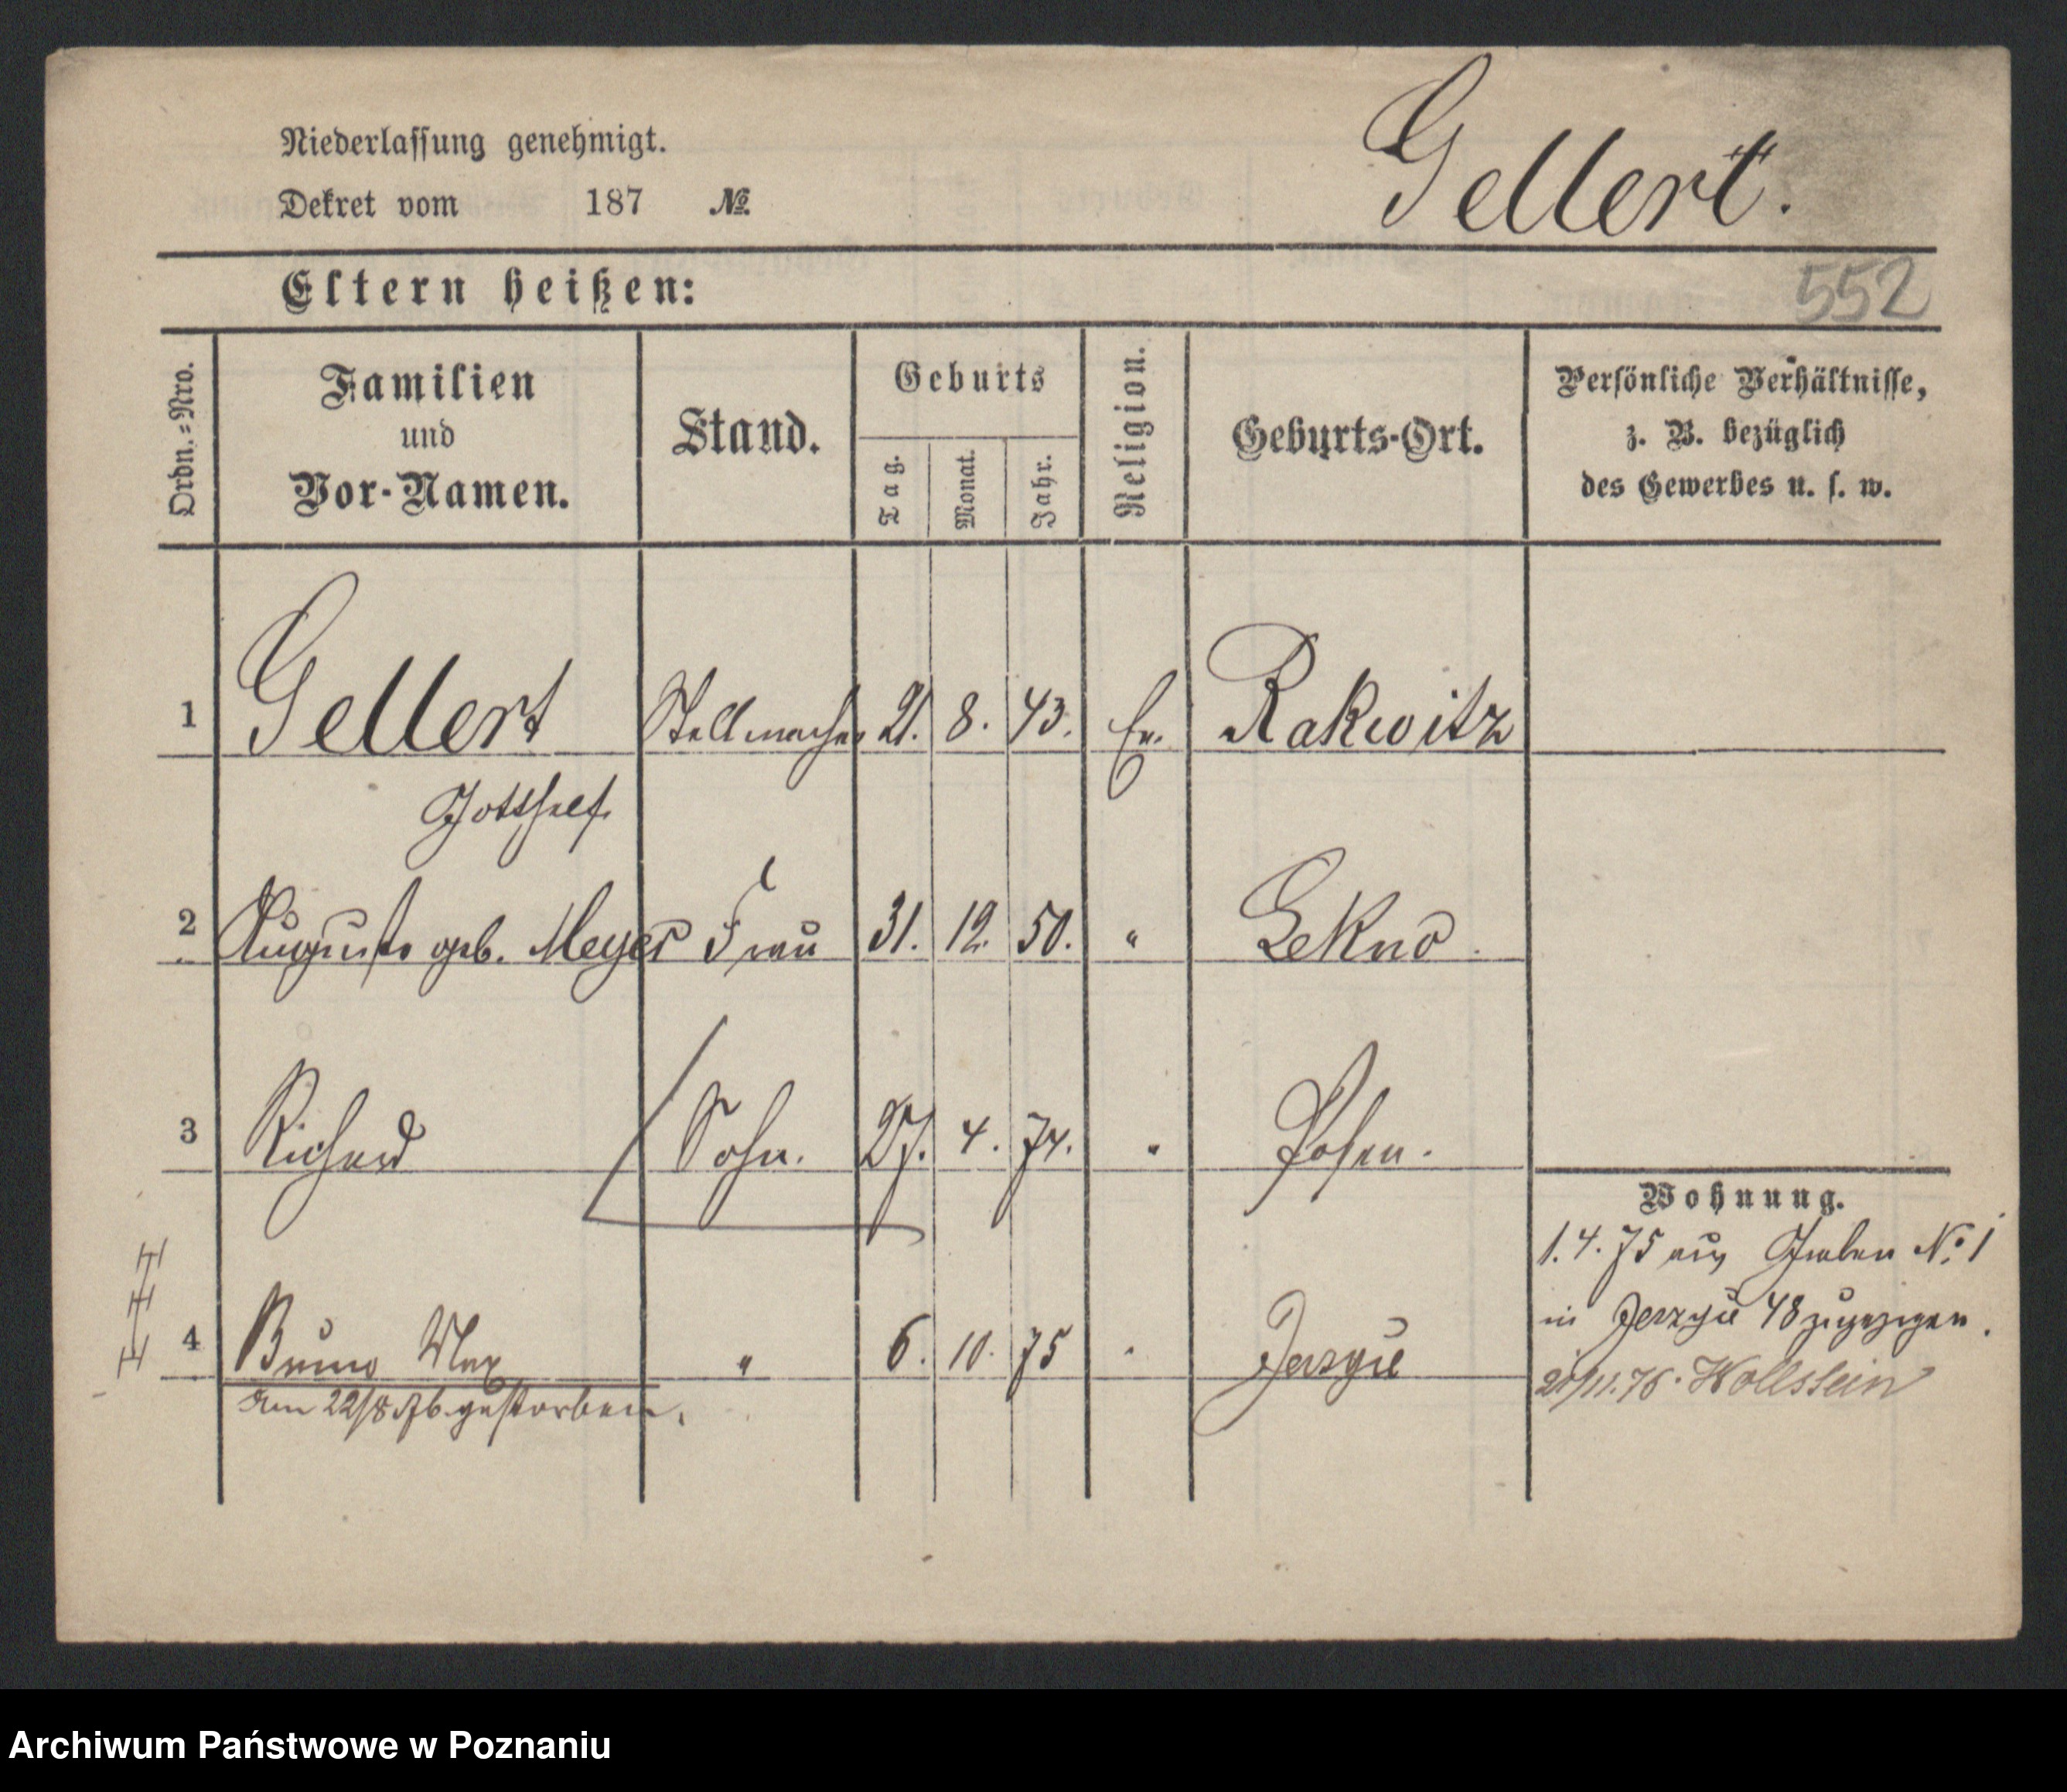 Niederlassung genehmigt.
Dekret vom 187 №
Gellert.
Eltern heißen:
552
Ordn.=Nro.
Familien
und
Vor-Namen.
Stand.
Geburts
Tag.
Monat.
Jahr.
Religion.
Geburts-Ort.
Persönliche Verhältnisse,
z. B. bezüglich
des Gewerbes u. s. w.
1 Gellert Stellmacher 21. 8. 43. Ev. Rakwitz
Gotthelf
2 Auguste geb. Meyer Frau 31. 12. 50. " Lekno.
3 Richard Sohn. 27. 4. 74. " Posen.
Wohnung.
1. 4. 75 aus Graben No. 1
in Jerzyce 48 zugezogen.
4 Bruno Max " 6. 10. 75 " Jerzyce
/11. 76. Wollstein
Am 22/8 76 gestorben.
Archiwum Państwowe w Poznaniu